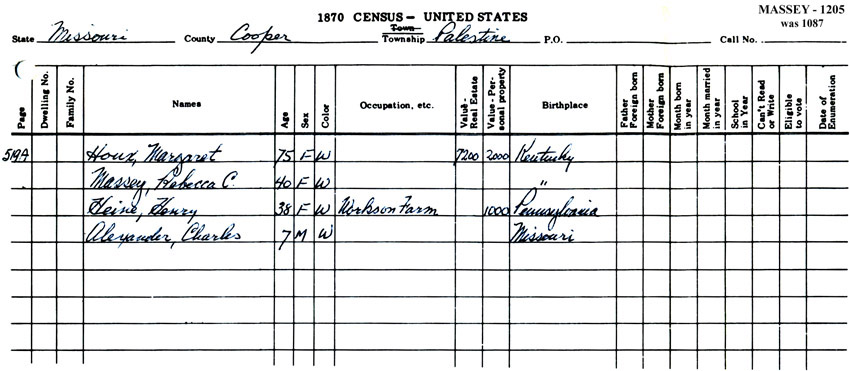 MASSEY - 1205
was 1087
1870 CENSUS – UNITED STATES
State Missouri County Cooper Town Township Palestine P.O. Call No.
Page Dwelling No. Family No. Names Age Sex Color Occupation, etc. Value - Real Estate Value - Personal property Birthplace Father Foreign born Mother Foreign born Month born in year Month married in year School in Year Can't Read or Write Eligible to vote Date of Enumeration
519A Houx, Margaret 75 F W 7200 2000 Kentucky
Massey, Rebecca C. 40 F W "
Heine, Henry 38 F W Works on Farm 1000 Pennsylvania
Alexander, Charles 7 M W Missouri